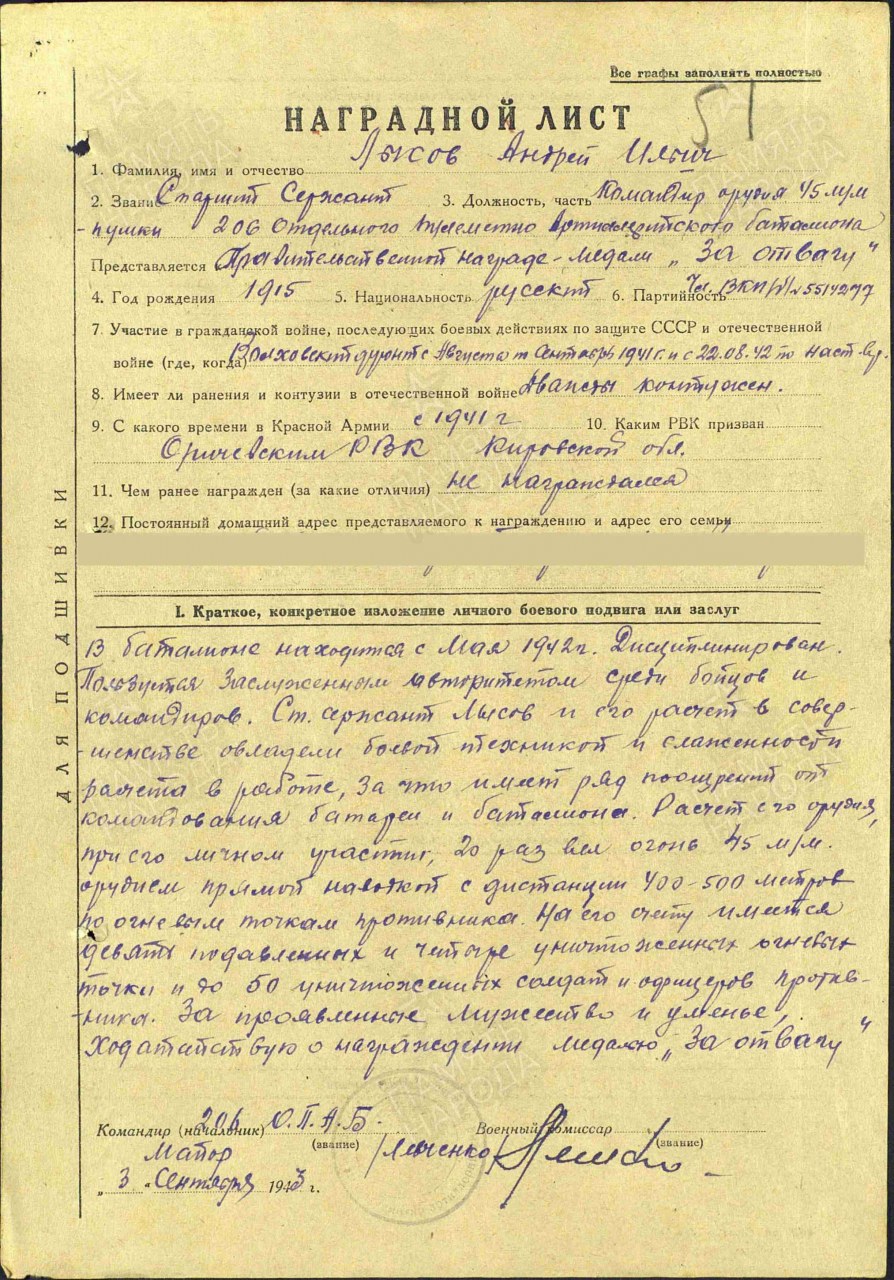 Все графы заполнять полностью
51
НАГРАДНОЙ ЛИСТ
1. Фамилия, имя и отчество Лысов Андрей Ильич
2. Звание Старший Сержант 3. Должность, часть Командир орудия 45 м/м
пушки 206 Отдельного Пулеметно Артиллерийского батальона
Представляется Правительственной награде-медали „За отвагу"
4. Год рождения 1915 5. Национальность русский 6. Партийность Чл. ВКП/б/ № 5514277
7. Участие в гражданской войне, последующих боевых действиях по защите СССР и отечественной
войне (где, когда) Волховский фронт с Августа по Сентябрь 1941 г. и с 22.08.42 по наст. вр.
8. Имеет ли ранения и контузии в отечественной войне Дважды контужен.
9. С какого времени в Красной Армии с 1941 г 10. Каким РВК призван
Оричевским РВК Кировской обл.
11. Чем ранее награжден (за какие отличия) не награждался
12. Постоянный домашний адрес представляемого к награждению и адрес его семьи
ДЛЯ ПОДШИВКИ
I. Краткое, конкретное изложение личного боевого подвига или заслуг
В батальоне находится с Мая 1942 г. Дисциплинирован.
Пользуется Заслуженным авторитетом среди бойцов и
командиров. Ст. сержант Лысов и его расчет в совер-
-шенстве овладели боевой техникой и слаженности
расчета в работе, за что имеет ряд поощрений от
командования батареи и батальона. Расчет его орудия,
при его личном участии, 20 раз вел огонь 45 м/м.
орудием прямой наводкой с дистанции 400-500 метров
по огневым точкам противника. На его счету имеется
девять подавленных и четыре уничтоженных огневых
точки и до 50 уничтоженных солдат и офицеров против-
-ника. За проявленные мужество и уменье,
Ходатайствую о награждении медалью „За отвагу"
Командир (начальник) 206 О.П.А.Б. Военный комиссар
(звание) (звание)
Майор
„3" Сентября 1943 г.